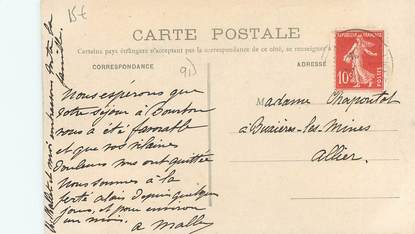 15€
CARTE POSTALE
Certains pays étrangers n'acceptant pas la correspondance de ce côté, se renseigner à
CORRESPONDANCE
ADRESSE
91)
REPUBLIQUE FRANÇAISE
10c
POSTES
Nous espérons que
votre séjour à Bourbon
vous a été favorable
et que vos vilaines
douleurs vous ont quittée
Nous sommes à la
ferté alais depuis quelques
jours, et pour environ
un mois.
a Mallet
Madame Chapoutot
à Buxières-les-Mines
Allier.
Mallet et moi embrassons toute la
famille.